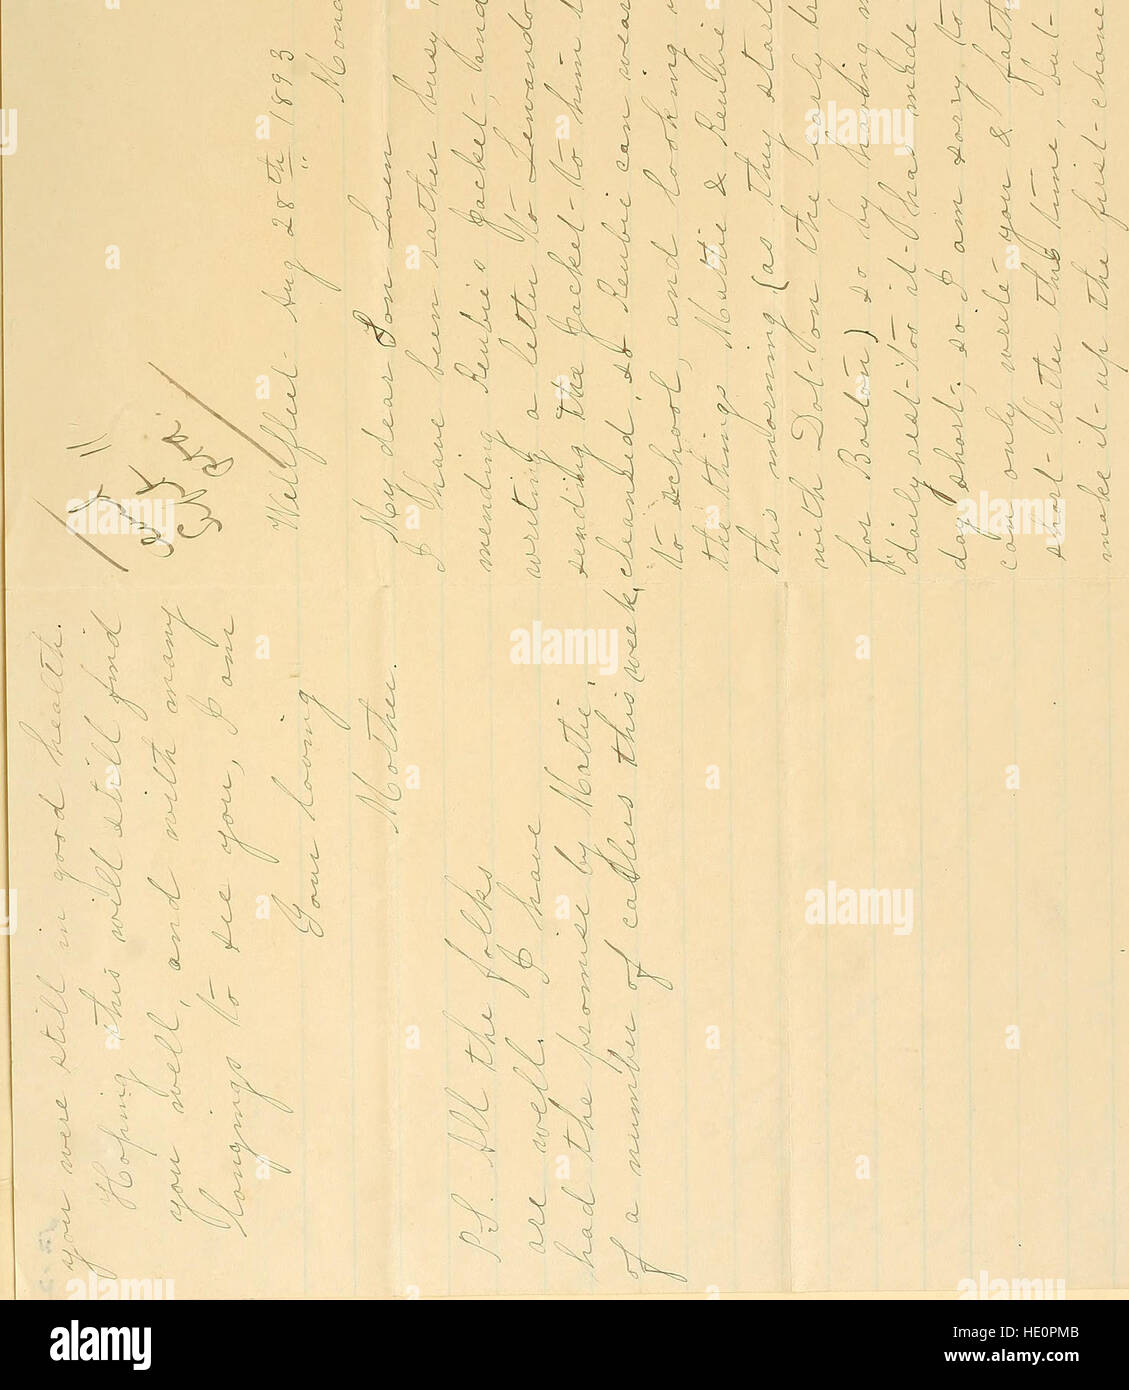 Wellfleet Aug 28th 1893
My dear Son Loren
I have been rather busy
mending Reubie's jacket, and
writing a letter to Lewando
sending the jacket to him to
cleansed, so Reubie can wear
to school, and looking
the things Mattie & Reubie
this morning (as they start
with Dot for the early
for Boston) so by having
daily rest too it has made
day short, so I am sorry to
can only write you & Fath
short letter this time, but
make it up the first chanc
you were still in good health.
Hoping this will still find
you well, and with many
longings to see you, I am
Your loving
Mother.
P.S. All the folks
are well. I have
had the promise by Mattie,
of a number of callers this week.
alamy
www.alamy.com
HE0PMB